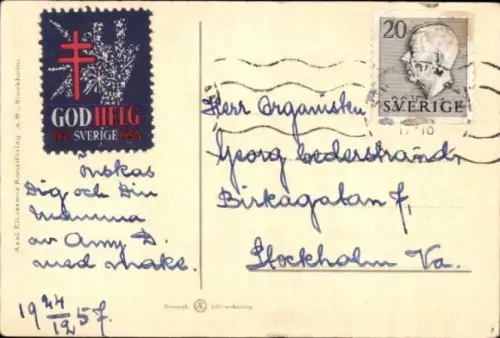 GOD HELG
SVERIGE
önskas
Dig och Din
Mamma
av Anny D.
med make.
19 24/12 57.
20
SVERIGE
Herr Organisten
Georg Cederstrand,
Birkagatan 7,
Stockholm Va.
Axel Eliassons Konstförlag A.B., Stockholm
Svensk
tillverkning